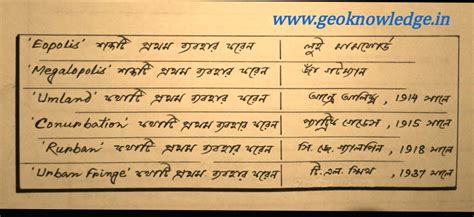 www.geoknowledge.in
'Eopolis' শব্দটি প্রথম ব্যবহার করেন | লুই মামফোর্ড
'Megalopolis' শব্দটি প্রথম ব্যবহার করেন | জাঁ গটম্যান
'Umland' কথাটি প্রথম ব্যবহার করেন | আন্দ্রে আলিক্স, 1914 সালে
'Conurbation' কথাটি প্রথম ব্যবহার করেন | প্যাট্রিক গেডেস, 1915 সালে
'Rurban' কথাটি প্রথম ব্যবহার করেন | সি. জে. গ্যালপিন, 1918 সালে
'Urban Fringe' কথাটি প্রথম ব্যবহার করেন | টি. এল. স্মিথ, 1937 সালে